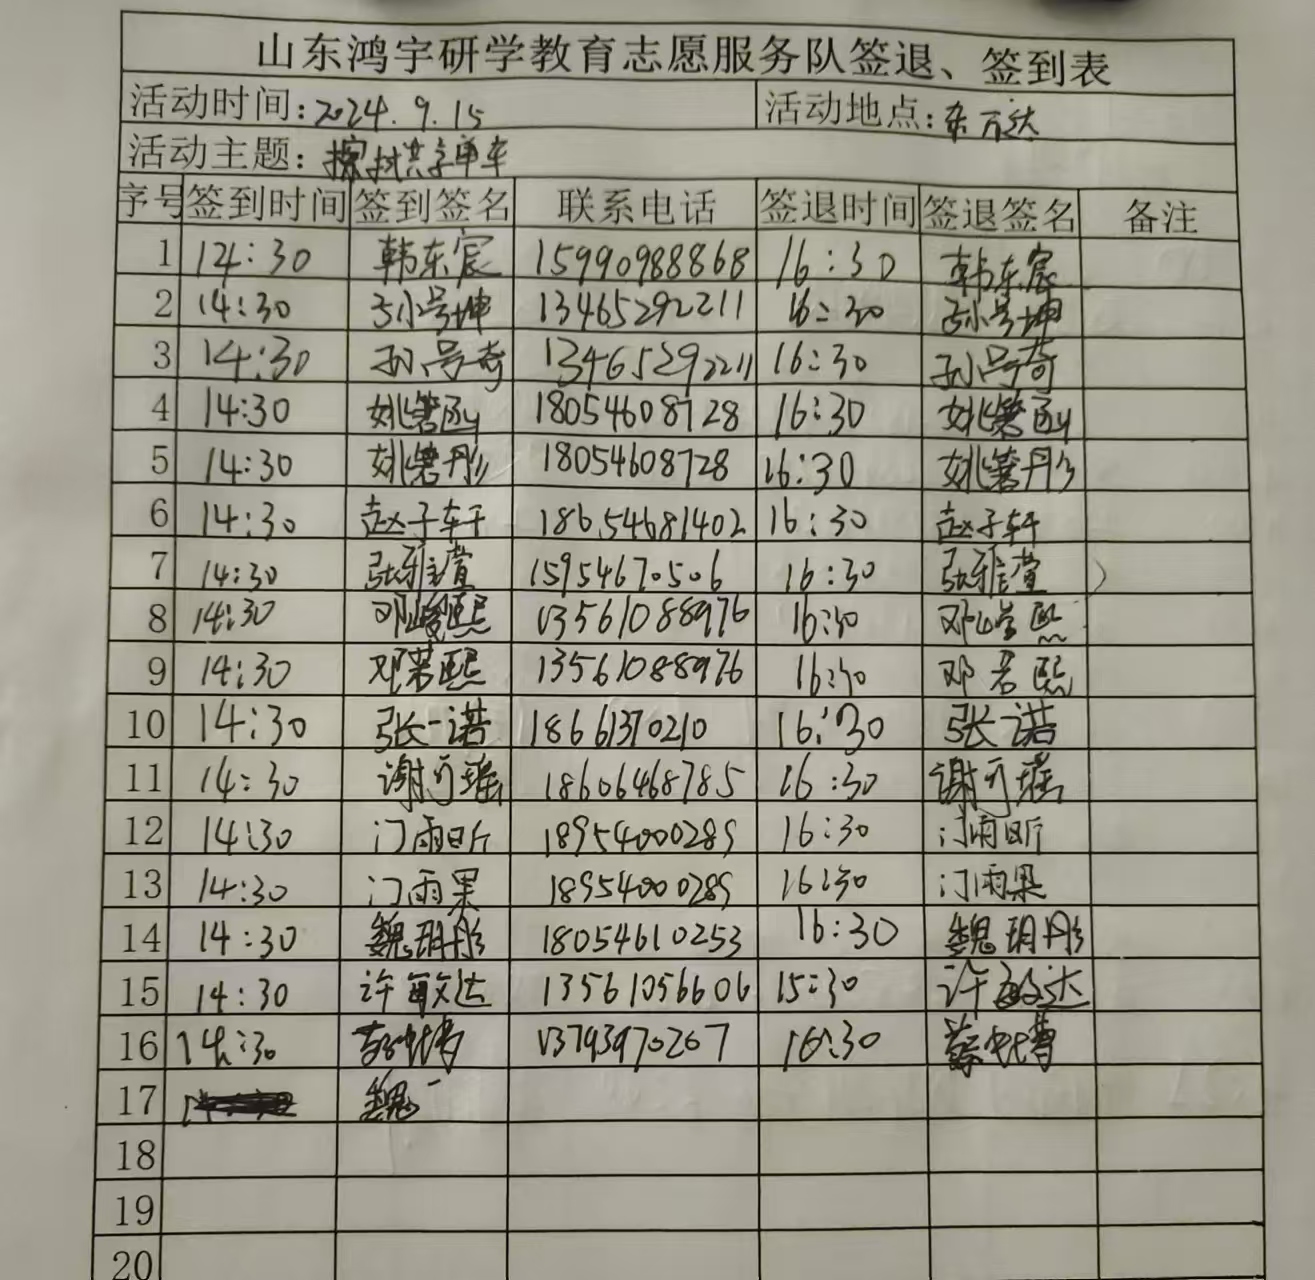 山东鸿宇研学教育志愿服务队签退、签到表
活动时间:2024.9.15 活动地点:东万达
活动主题:擦拭共享单车
序号 签到时间 签到签名 联系电话 签退时间 签退签名 备注
1 14:30 韩东宸 15990988868 16:30 韩东宸
2 14:30 孙号坤 13465292211 16:30 孙号坤
3 14:30 孙号奇 13465292211 16:30 孙号奇
4 14:30 姚箬函 18054608728 16:30 姚箬函
5 14:30 姚箬彤 18054608728 16:30 姚箬彤
6 14:30 赵子轩 18654681402 16:30 赵子轩
7 14:30 张雅萱 15954670506 16:30 张雅萱
8 14:30 邓峻熙 13561088976 16:30 邓峻熙
9 14:30 邓若熙 13561088976 16:30 邓若熙
10 14:30 张一诺 18661370210 16:30 张一诺
11 14:30 谢可瑶 18606468785 16:30 谢可瑶
12 14:30 门雨昕 18954000289 16:30 门雨昕
13 14:30 门雨果 18954000289 16:30 门雨果
14 14:30 魏玥彤 18054610253 16:30 魏玥彤
15 14:30 许敏达 13561056606 15:30 许敏达
16 14:30 13793970267 16:30
17 魏一
18
19
20